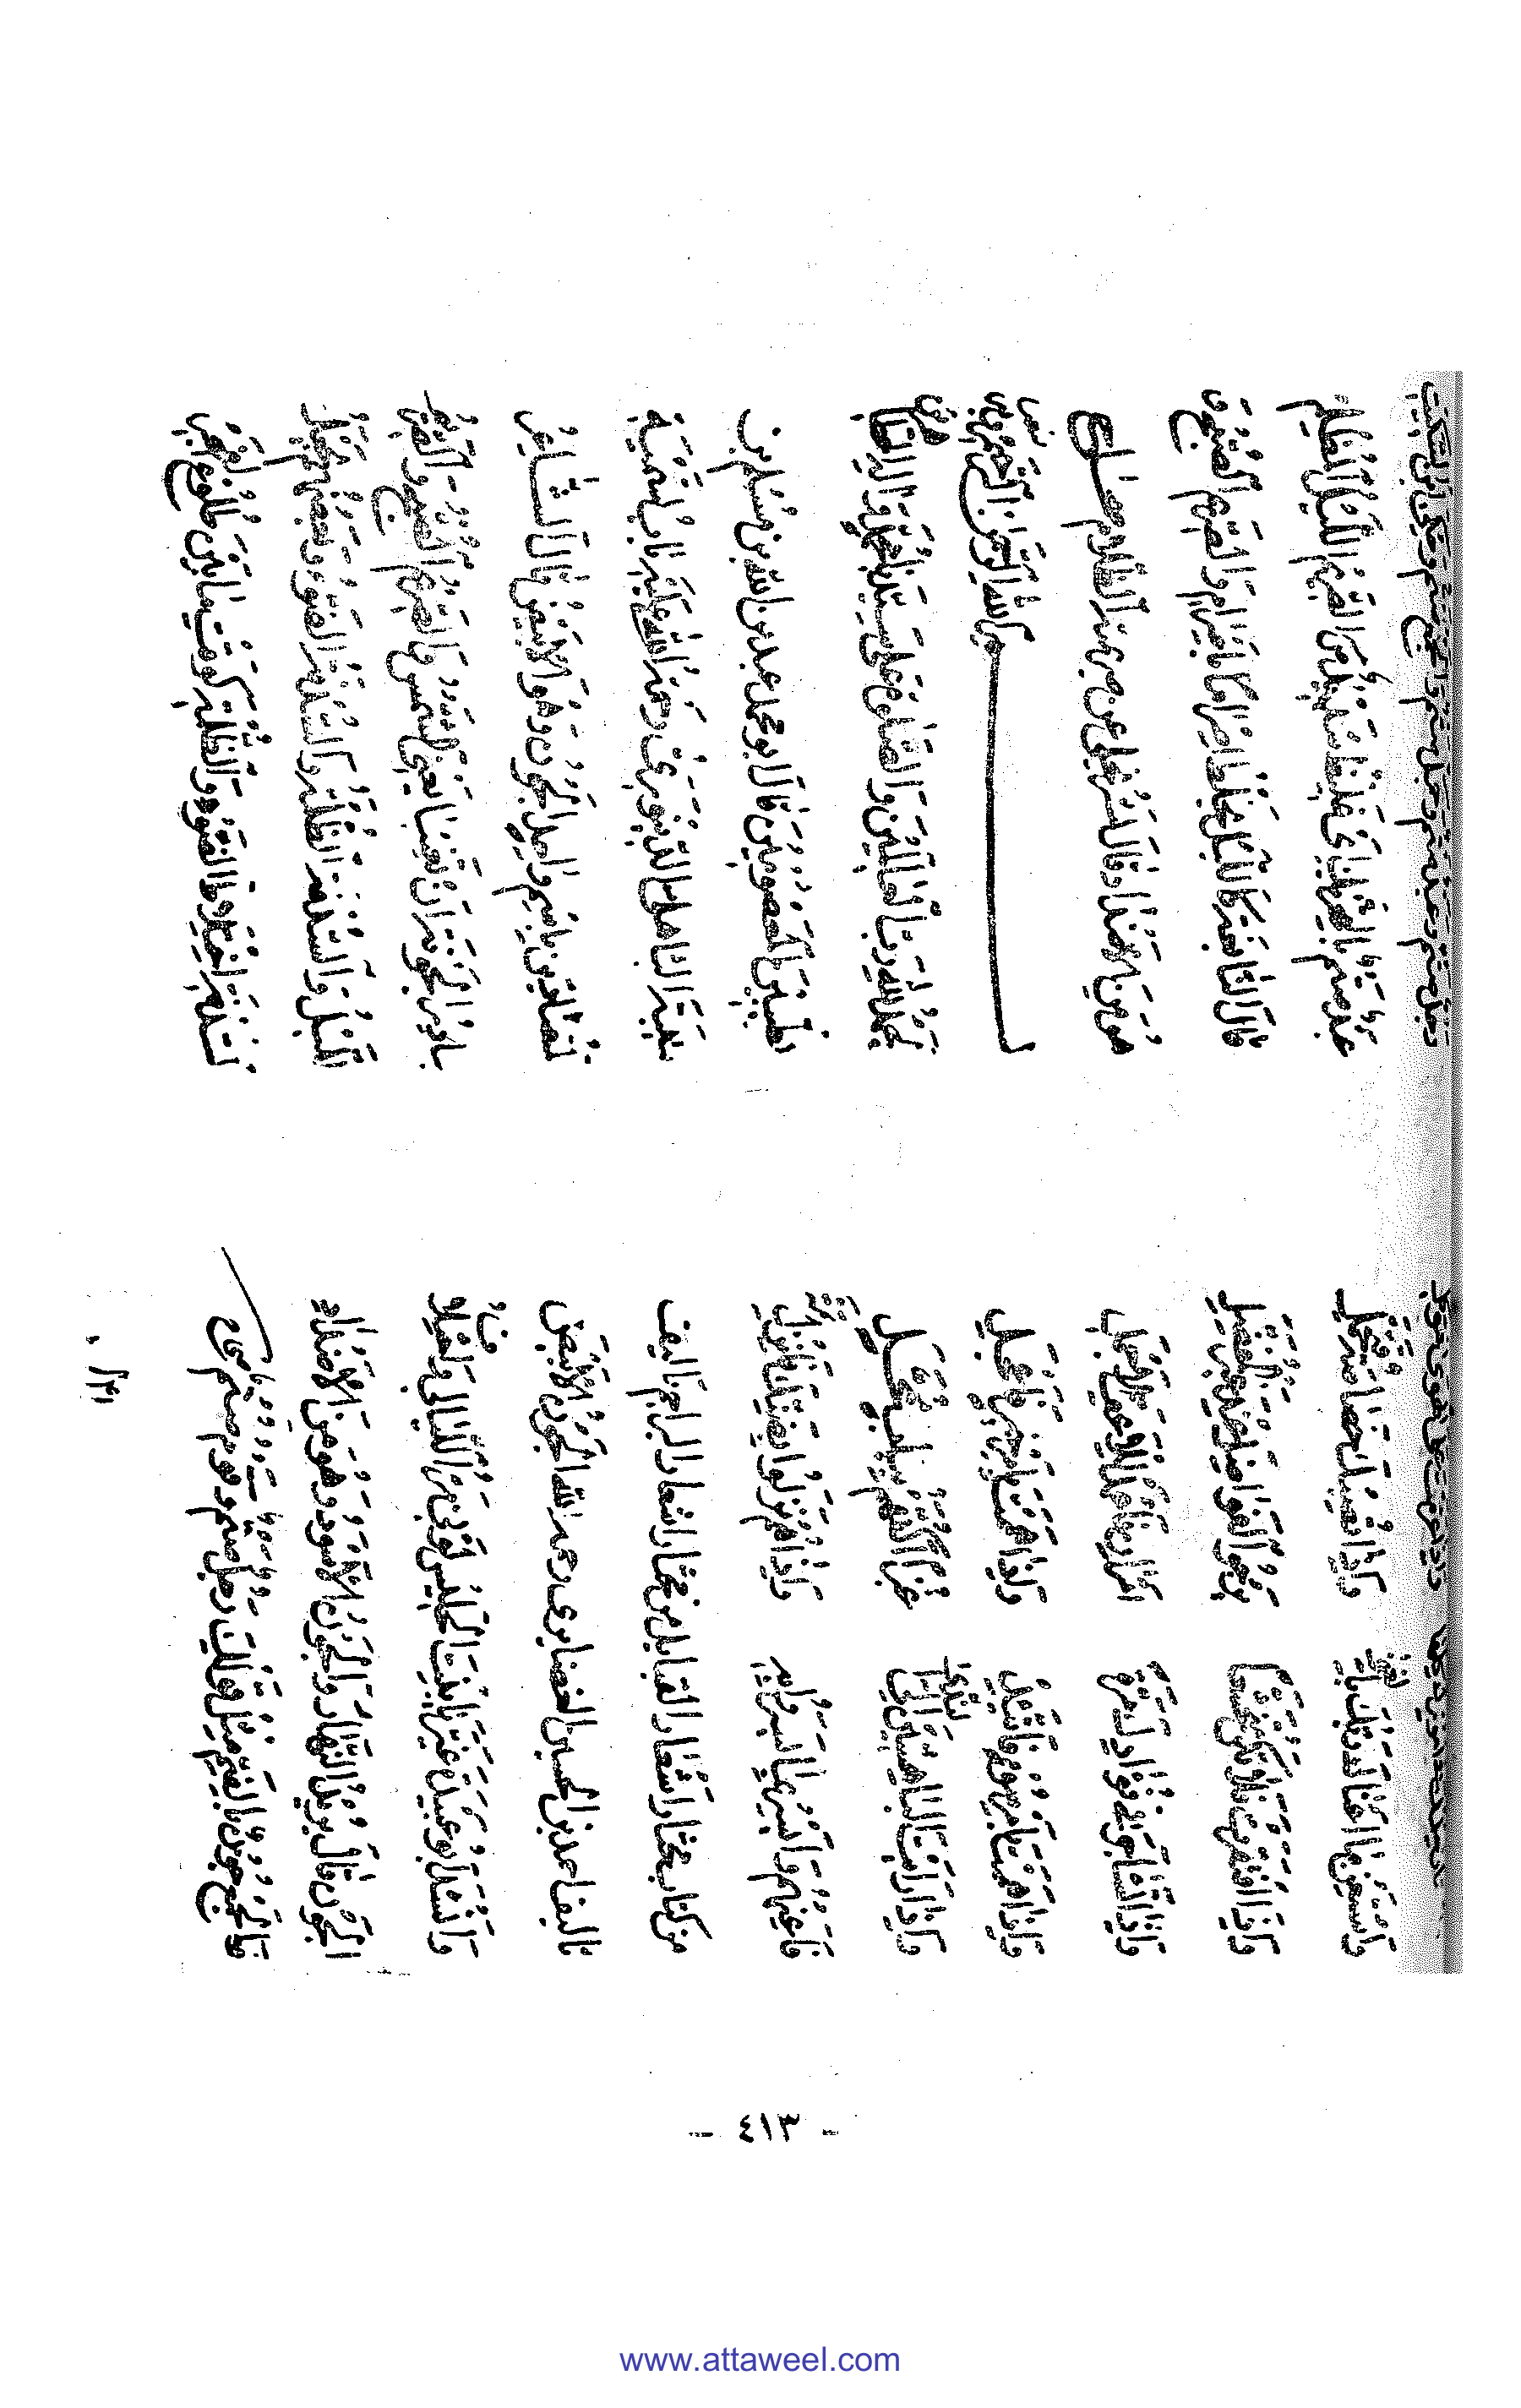 واستغن ما اغناك ربك بالغنى واذا تصبك خصاصة فتجمل
واذا افتقرت فلا تكن متخشعا ترجو الفواضل عند غير المفضل
واذا تشاجر في فؤادك مرة امران فاعمد للاعف الاجمل
واذا هممت بامر سوء فاتئد واذا هممت بامر خير فاعجل
واذا رايت الباهشين الى الندى غبرا اكفهم بقاع ممحل
فاعنهم وايسر بما يسروا به واذا هم نزلوا بضنك فانزل
من كتاب مختار اشعار القبايل من مختار اشعار تاليف
تاليف احمد بن الحسين الغضايري رحمه الله الجون الابيض
وانشد ابو عبيدة غير يا بنت الحليس لوني مر الليالي واختلاف
الجون قال يريد النهار والجون الاسود وهو من الاضداد
والجمع جون بالضم مثل قولك رجل صتم وقوم صتم صحاح
رجل صتم وعبد صتم وجمل صتم والجمع صتم وحكى ابن السكيت
عبد صتم بالضم اي غليظ شديد الصريم الليل المظلم
قال النابغة كالليل يخلط اصراما باصرام والصريم الصبح
هو من الاضداد قال بشر تجلى عن صريمته الظلام صحاح
بسم الله الرحمن الرحيم
الحمد لله رب العالمين والصلوة على سيدنا محمد واله الطاهرين
المعصومين قال ابو محمد عبد بن الله بن مسلم بن
قتيبة الباهلي الدينوري رحمة الله عليه باب تسمية
المتضادين باسم واحد الجون وهو الابيض قال الشاعر
يبادر الجونة ان تغيبا يعني الشمس والصريم الصبح والصريم
الليل والسدفة الظلمة والسدفة الضوء وبعضهم يجعل
السدفة اختلاط الضوء والظلمة كوقت ما بين طلوع الفجر
- ٤١٣ -
www.attaweel.com